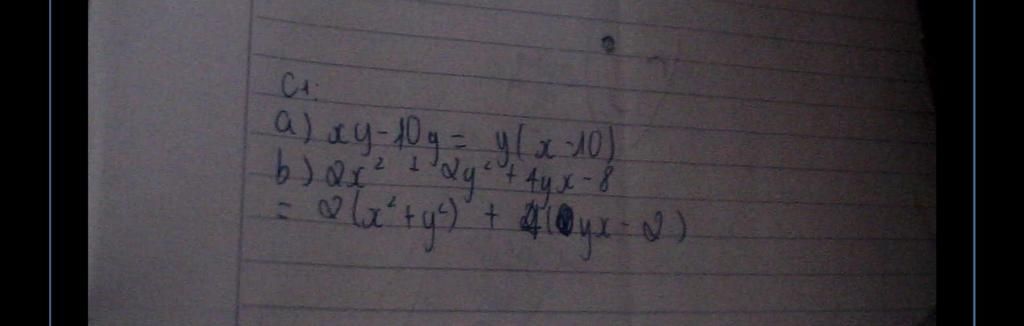 C1:
a) xy - 10y = y(x - 10)
b) 2x² + 2y² + 4yx - 8
= 2(x² + y²) + 4(yx - 2)